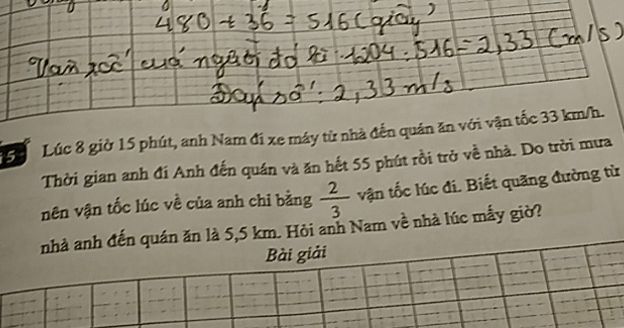 480 + 36 = 516 (giây)
Vận tốc của người đó là: 1204 : 516 = 2,33 (m/s)
Đáp số: 2,33 m/s
5 Lúc 8 giờ 15 phút, anh Nam đi xe máy từ nhà đến quán ăn với vận tốc 33 km/h.
Thời gian anh đi Anh đến quán và ăn hết 55 phút rồi trở về nhà. Do trời mưa
nên vận tốc lúc về của anh chỉ bằng 2/3 vận tốc lúc đi. Biết quãng đường từ
nhà anh đến quán ăn là 5,5 km. Hỏi anh Nam về nhà lúc mấy giờ?
Bài giải